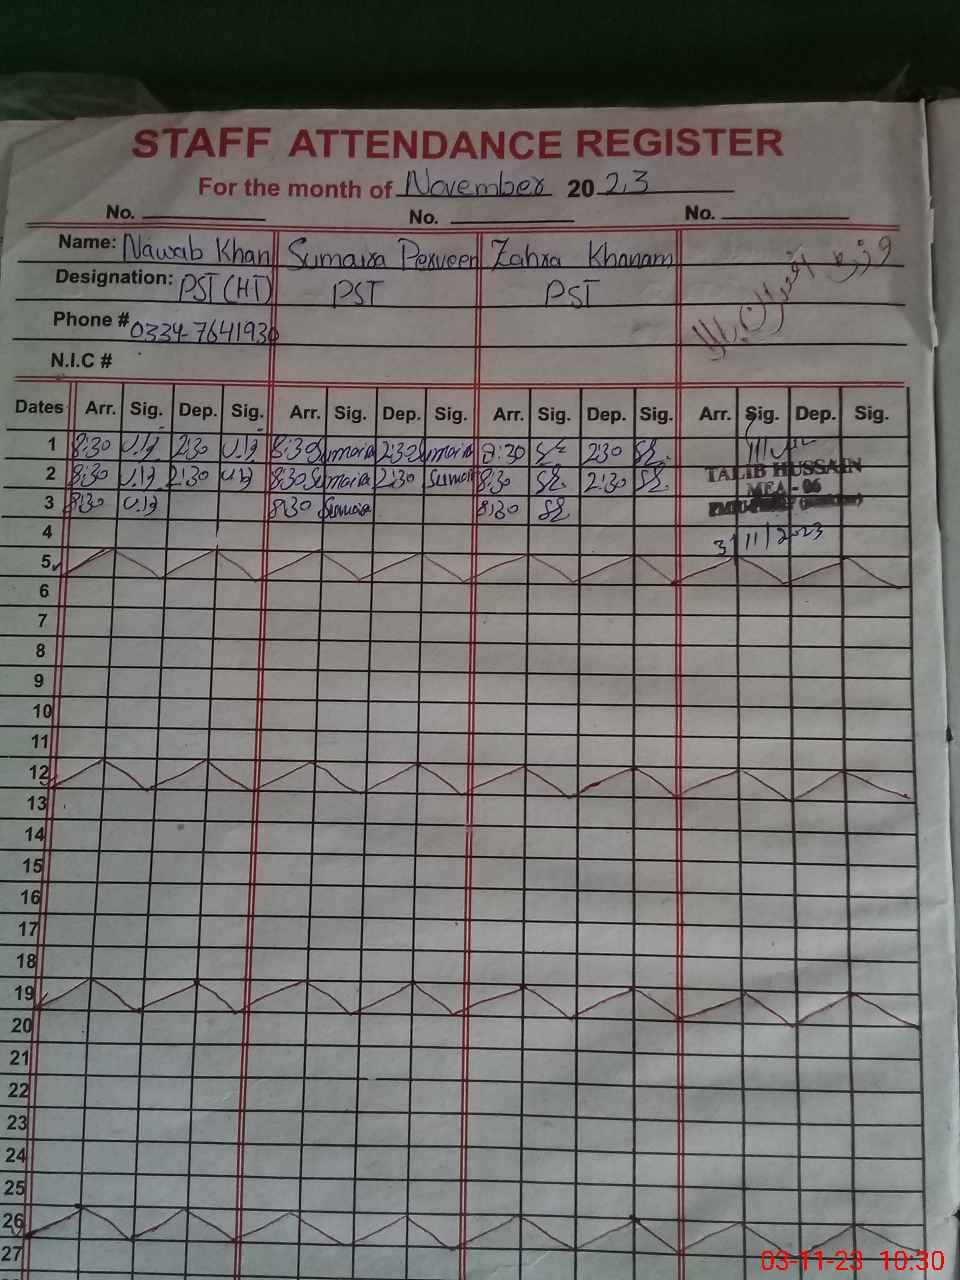 STAFF ATTENDANCE REGISTER
For the month of November 20 23
No. No. No.
Name: Nawab Khan Sumaira Perveen Zahra Khanam
Designation: PST (HT) PST PST
وزٹ افسران بالا
Phone # 0334-7641930
N.I.C #
Dates Arr. Sig. Dep. Sig. Arr. Sig. Dep. Sig. Arr. Sig. Dep. Sig. Arr. Sig. Dep. Sig.
1 8:30 2:30 8:30 Sumaira 2:30 Sumaira 8:30 2:30
2 8:30 2:30 8:30 Sumaira 2:30 Sumaira 8:30 2:30
TALIB HUSSAIN
MEA - 06
3 8:30 8:30 Sumaira 8:30
4
3/11/2023
5
6
7
8
9
10
11
12
13
14
15
16
17
18
19
20
21
22
23
24
25
26
27
03-11-23 10:30